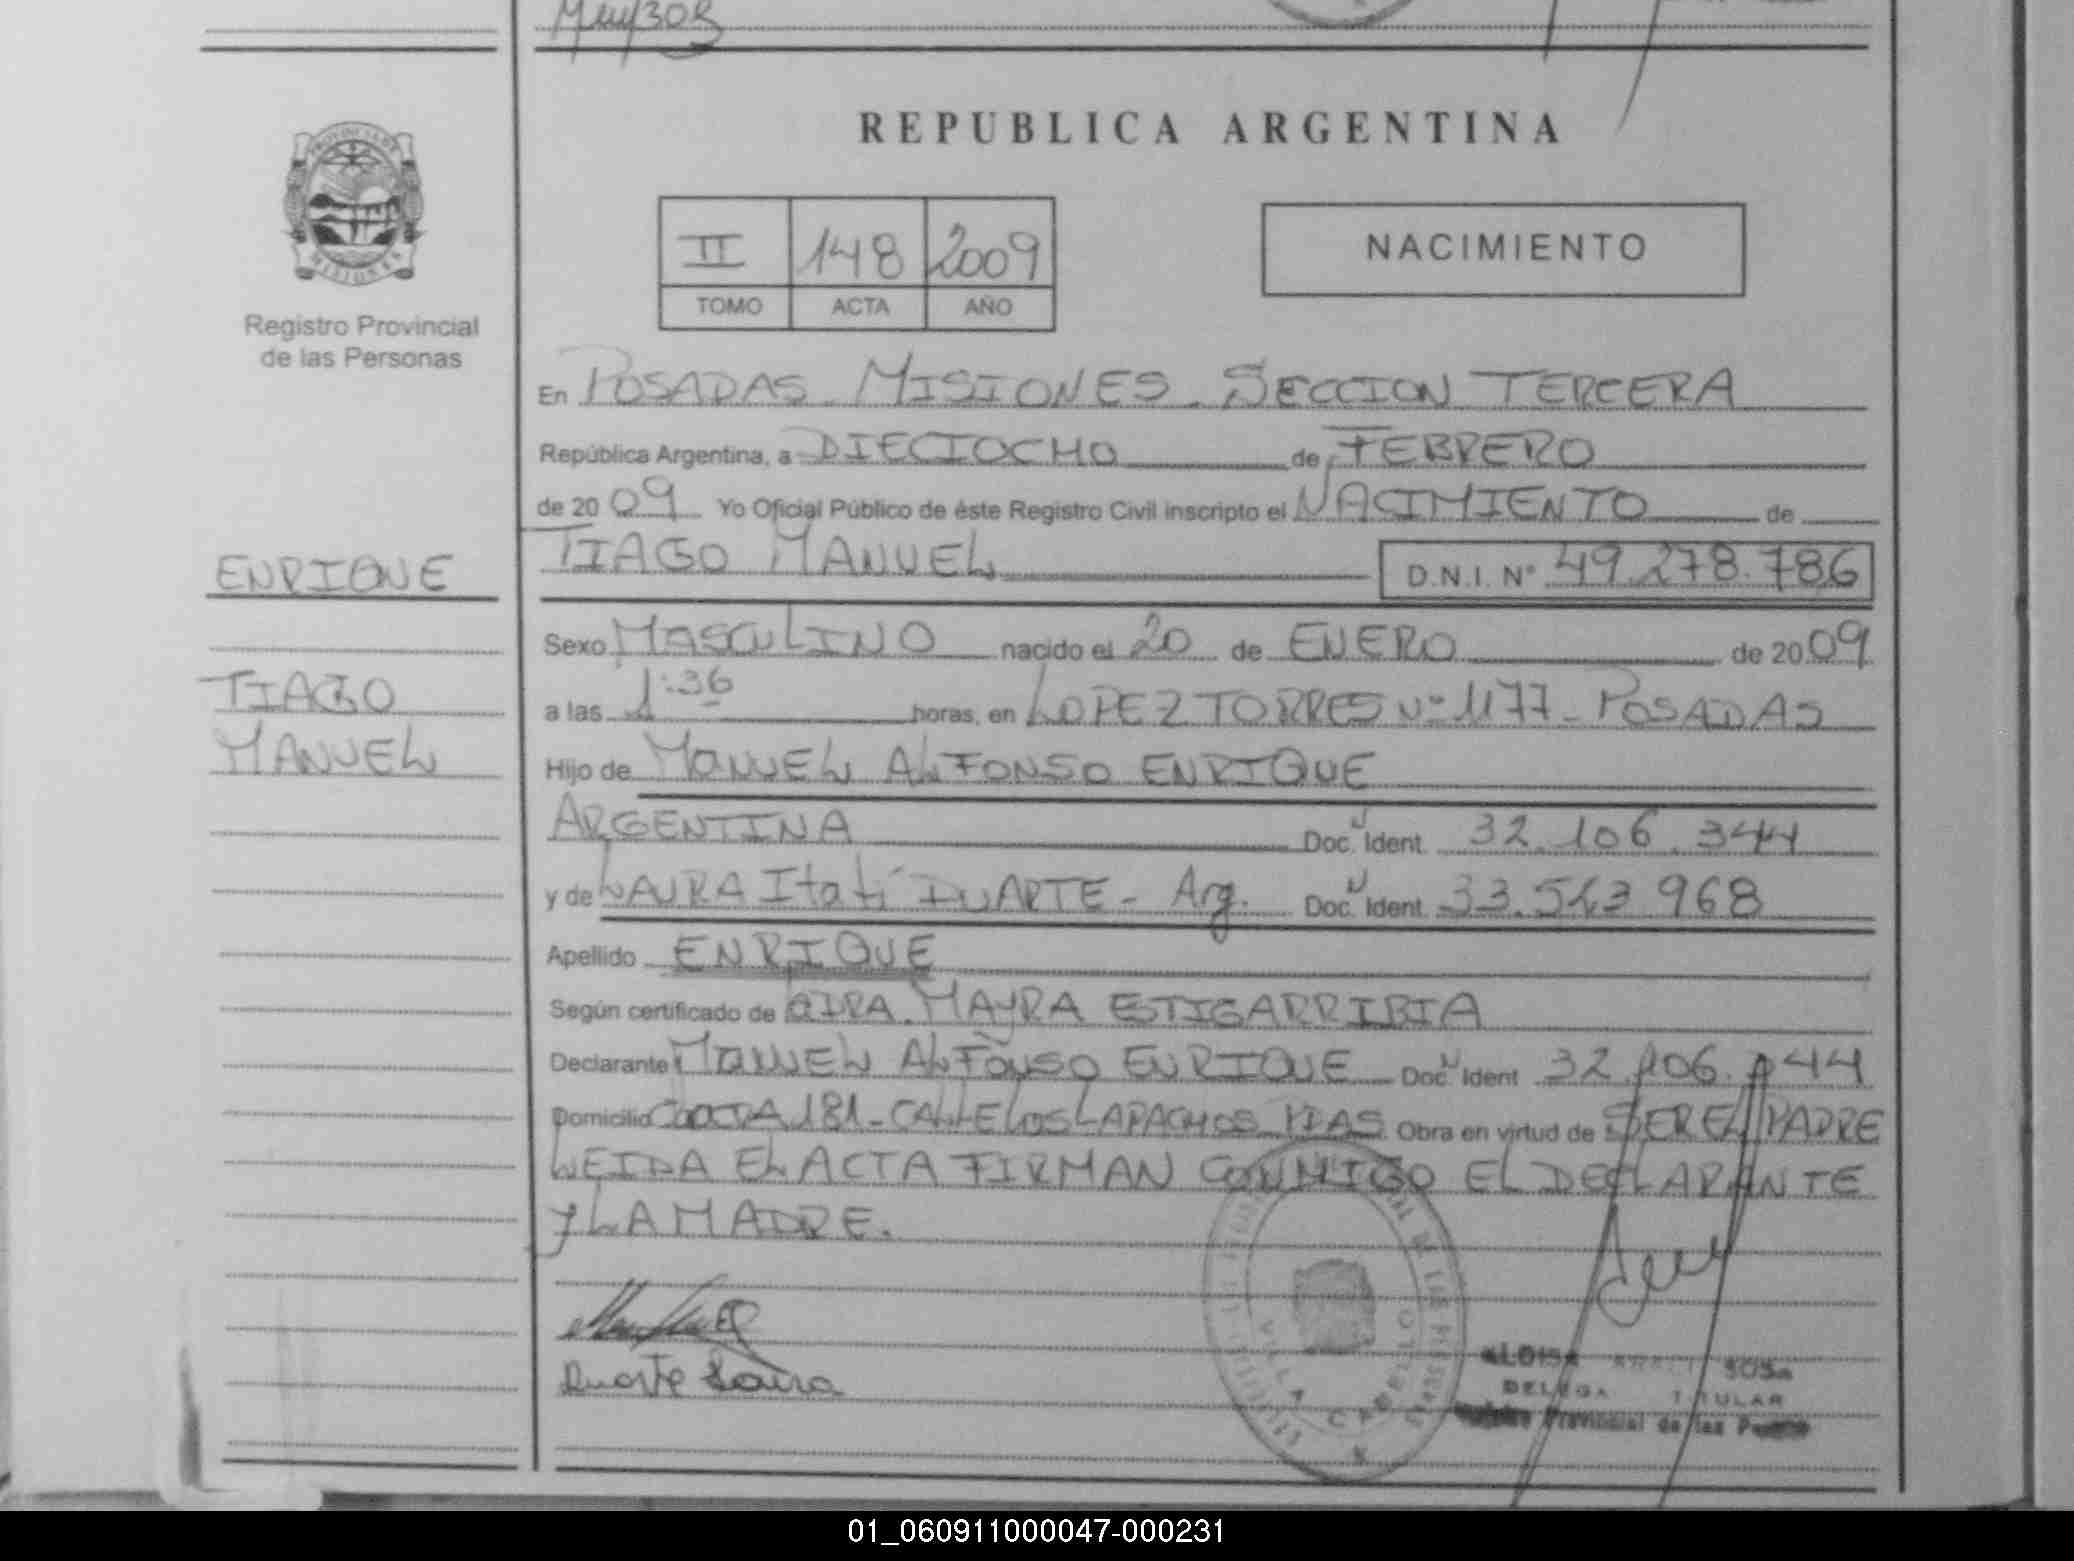 REPUBLICA ARGENTINA
PROVINCIA DE
MISIONES
II 148 2009
TOMO ACTA AÑO
NACIMIENTO
Registro Provincial
de las Personas
En POSADAS - MISIONES - SECCION TERCERA
República Argentina, a DIECIOCHO de FEBRERO
de 2009 Yo Oficial Público de éste Registro Civil inscripto el NACIMIENTO de
ENRIQUE
TIAGO MANUEL D.N.I. Nº 49.278.786
Sexo MASCULINO nacido el 20 de ENERO de 2009
TIAGO
MANUEL
a las 1:36 horas, en LOPEZ TORRES Nº 1177 - POSADAS
Hijo de MANUEL ALFONSO ENRIQUE
ARGENTINA Doc. Ident. 32.106.344
y de LAURA Itatí DUARTE - Arg. Doc. Ident. 33.543.968
Apellido ENRIQUE
Según certificado de MAYRA ESTIGARRIBIA
Declarante MANUEL ALFONSO ENRIQUE Doc. Ident 32.106.344
Domicilio 181 - CALLE LOS LAPACHOS PDAS Obra en virtud de SER EL PADRE
LEIDA EL ACTA FIRMAN CONMIGO EL DECLARANTE
Y LA MADRE.
Duarte Laura
VILLA CABELLO
SOSA
TITULAR
Provincial de las
01_060911000047-000231